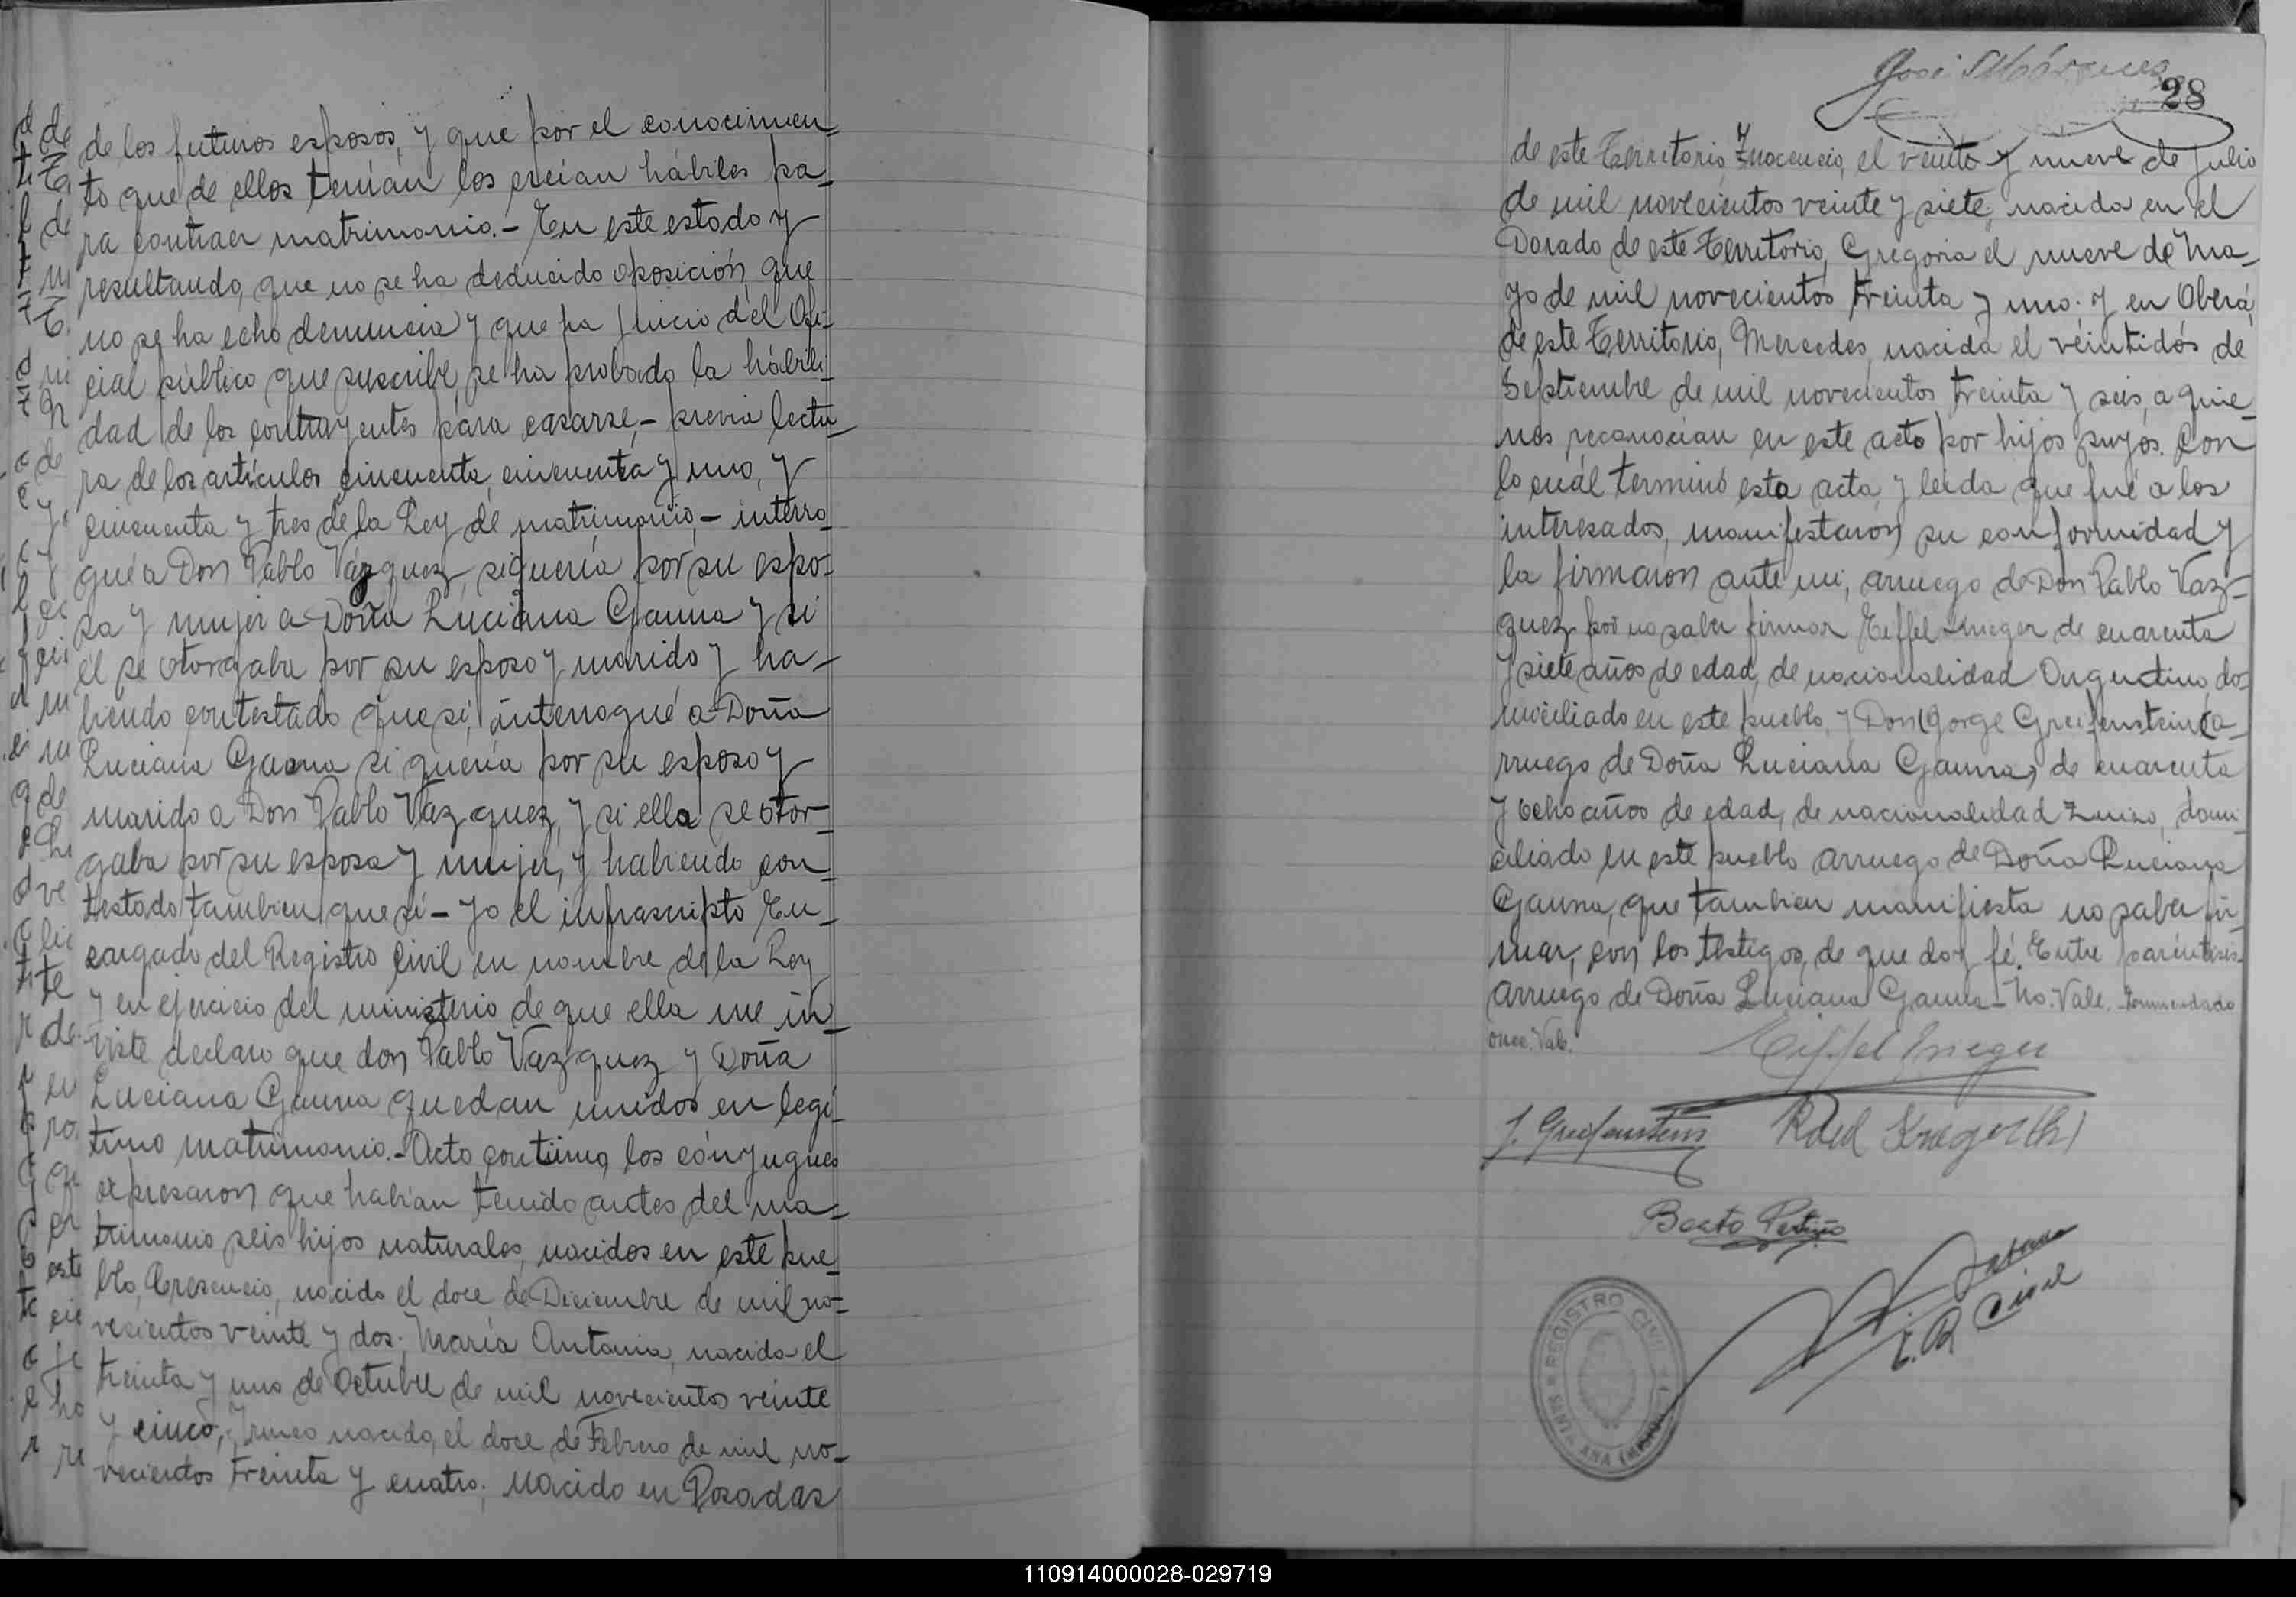 de los futuros esposos, y que por el conocimien=
to que de ellos tenían los creían hábiles pa=
ra contraer matrimonio.- En este estado y
resultando, que no se ha deducido oposición, que
no se ha echo denuncia y que ha juicio del Ofi=
cial público que suscribe, se ha probado la hábili=
dad de los contrayentes para casarse,- previa lectu=
ra de los artículos cincuenta, cincuenta y uno, y
cincuenta y tres de la Ley de matrimonio,- interro=
gué a Don Pablo Vázquez, si quería por su espo=
sa y mujer a Doña Luciana Gauna y si
él se otorgaba por su esposo y marido y ha=
biendo contestado que sí, interrogué a Doña
Luciana Gauna si quería por su esposo y
marido a Don Pablo Vazquez, y si ella se otor=
gaba por su esposa y mujer, y habiendo con=
testado tambien que sí- yo el infrascripto En=
cargado del Registro Civil en nombre de la Ley
y en ejercicio del ministerio de que ella me in=
viste declaro que don Pablo Vazquez y Doña
Luciana Gauna quedan unidos en legí=
timo matrimonio.- Acto contínuo, los cónyugues
expresaron que habían tenido antes del ma=
trimonio seis hijos naturales, nacidos en este pue=
blo, Cresencio, nacido el doce de Diciembre de mil no=
vecientos veinte y dos; María Antonia, nacida el
treinta y uno de Octubre de mil novecientos veinte
y cinco; Irineo nacido, el doce de Febrero de mil no=
vecientos treinta y cuatro; Nacido en Posadas
José Márquez
28
de este Territorio, Inocencio, el veinte y nueve de Julio
de mil novecientos veinte y siete; nacida en el
Dorado de este Territorio, Gregoria el nueve de Ma=
yo de mil novecientos treinta y uno; y en Oberá,
de este Territorio, Mercedes, nacida el veintidós de
Septiembre de mil novecientos treinta y seis, a quie=
nes reconocían en este acto por hijos suyos. Con
lo cuál terminó esta acta, y leida que fué a los
interesados, manifestaron su conformidad y
la firmaron ante mi, arruego de Don Pablo Vaz=
quez por no saber firmar Eiffel Krieger de cuarenta
y siete años de edad, de nacionalidad Argentino, do=
miciliado en este pueblo, y Don Gorge Greifenstein (a=
rruego de Doña Luciana Gauna) de cuarenta
y ocho años de edad, de nacionalidad Zuizo, domi=
ciliado en este pueblo arruego de Doña Luciana
Gauna, que tambien manifiesta no saber fir=
mar, con los testigos, de que doy fé. Entre paréntesis=
arruego de Doña Luciana Gauna- No. Vale.
once. Vale.
Eiffel Krieger
J. Greifenstein Krieger (h)
Beato
E. R. Civil
REGISTRO CIVIL
SANTA ANA (MISIONES)
110914000028-029719